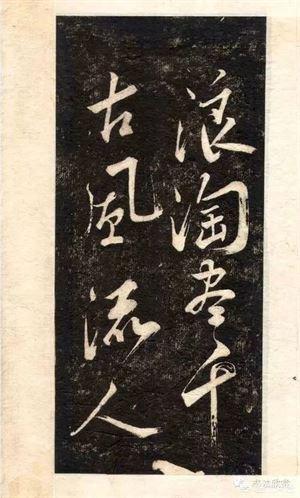 浪淘尽千
古風流人
书法欣赏